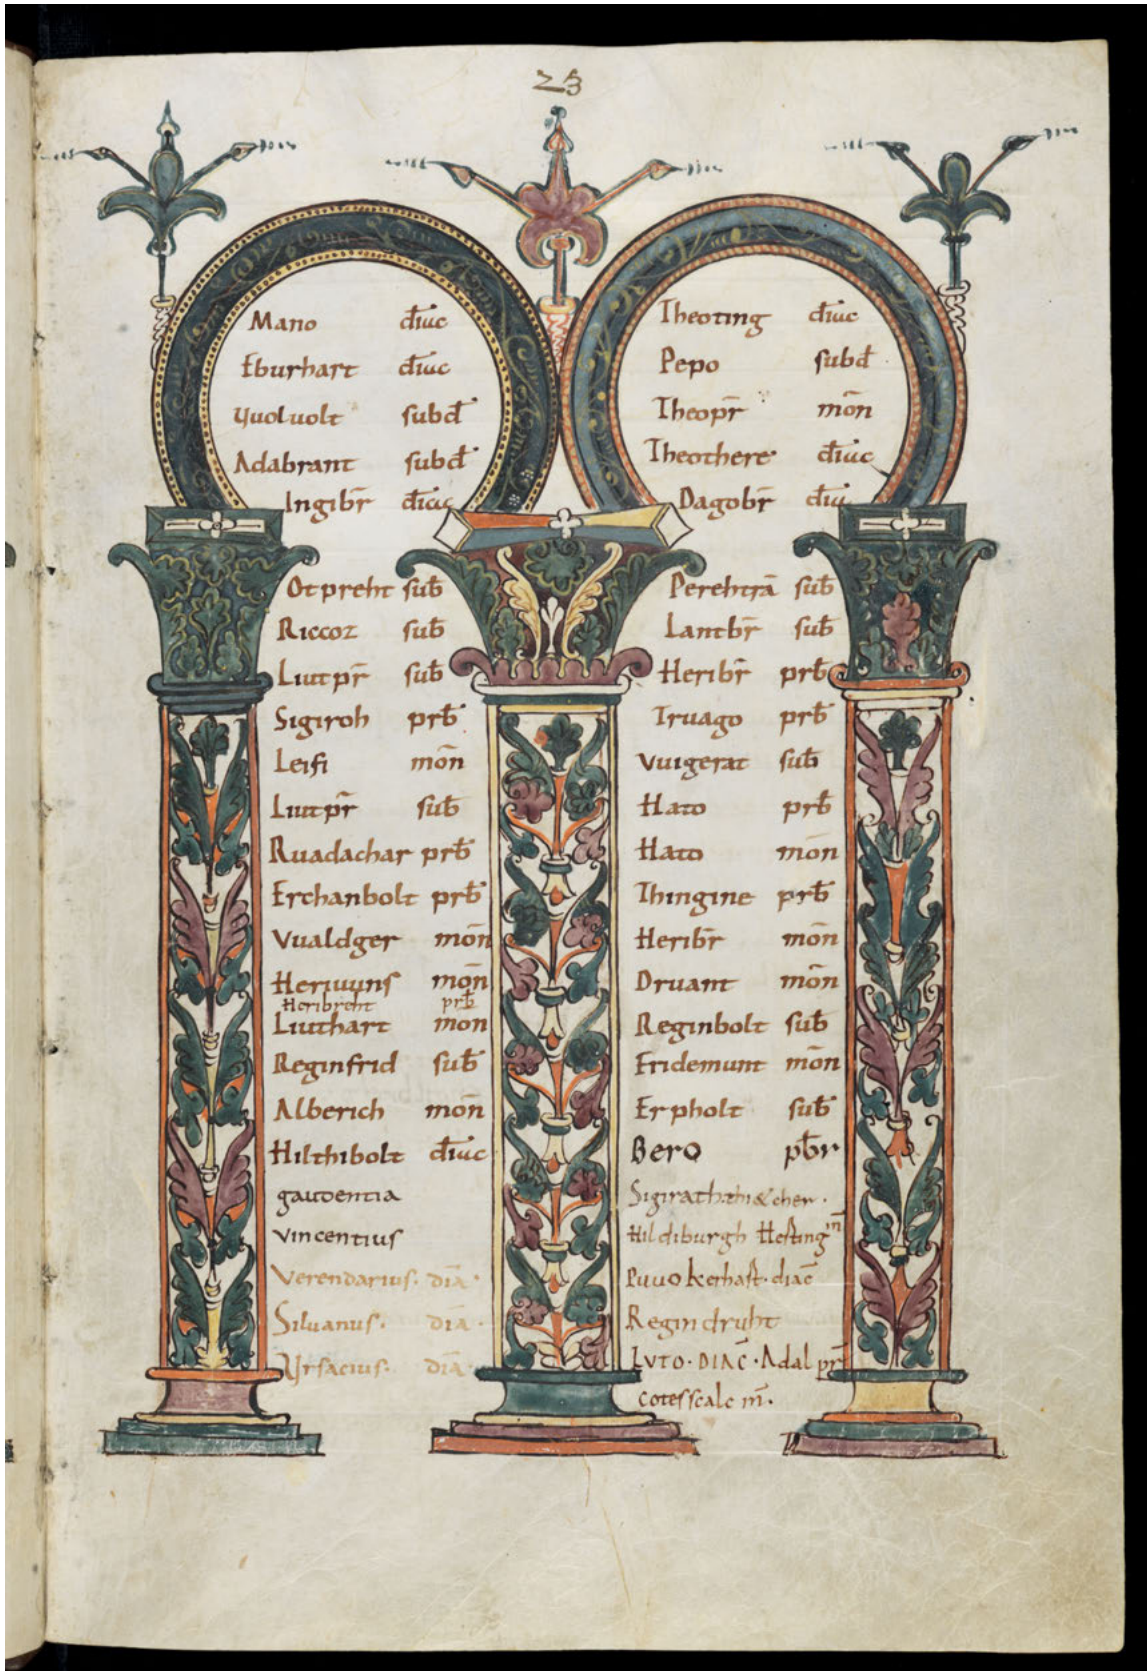 23
Mano diac
Eburhart diac
Vuoluolt subd
Adabrant subd
Ingibr̄ diac
Otpreht sub̄
Riccoz sub̄
Liutpr̄ sub̄
Sigiroh prb̄
Leifi mōn
Liutpr̄ sub̄
Ruadachar prb̄
Erchanbolt prb̄
Vualdger mōn
Heriuuns mōn
Heribreht prb̄
Liuthart mōn
Reginfrid sub̄
Alberich mōn
Hilthibolt diac
gaudentia
vincentius
Verendarius· diā·
Siluanus· diā·
Vrsacius· diā
Theoting diac
Pepo subd
Theopr̄ mōn
Theothere diac
Dagobr̄ diac
Perehtrā sub̄
Lantbr̄ sub̄
Heribr̄ prb̄
Truago prb̄
Vuigerat sub̄
Hato prb̄
Hato mōn
Thingine prb̄
Heribr̄ mōn
Druant mōn
Reginbolt sub̄
Fridemunt mōn
Erpholt sub̄
Bero pb̄r
Hildiburgh Hesting m̄
Puuo kerhast· diac̄
Regindruht
LVTO· DIAC̄· Adalpr̄
cotesscalc m̄·